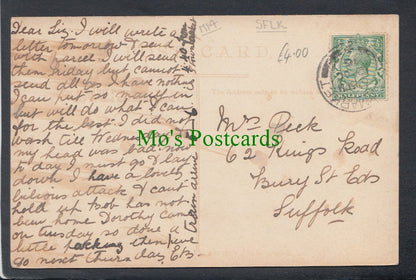 Dear Liz, I will write a
letter tomorrow & send
with parcel I will send
them Friday but cannot
send all as I have not
I can put so many in
but will do what I can
for the best. I did not
wash till Wednesday
my head was bad &
to day I must go & lay
down I have a lovely
bilious attack & cant
hold up Bob has not
been home Dorothy came
on Tuesday so done a
little packing then we
go next Thursday, Ets
train arrive
with
from
M/A
SFLK
£4.00
CARD
The Address
Mo's Postcards
Mrs Peck
62 Kings Road
Bury St Eds
Suffolk